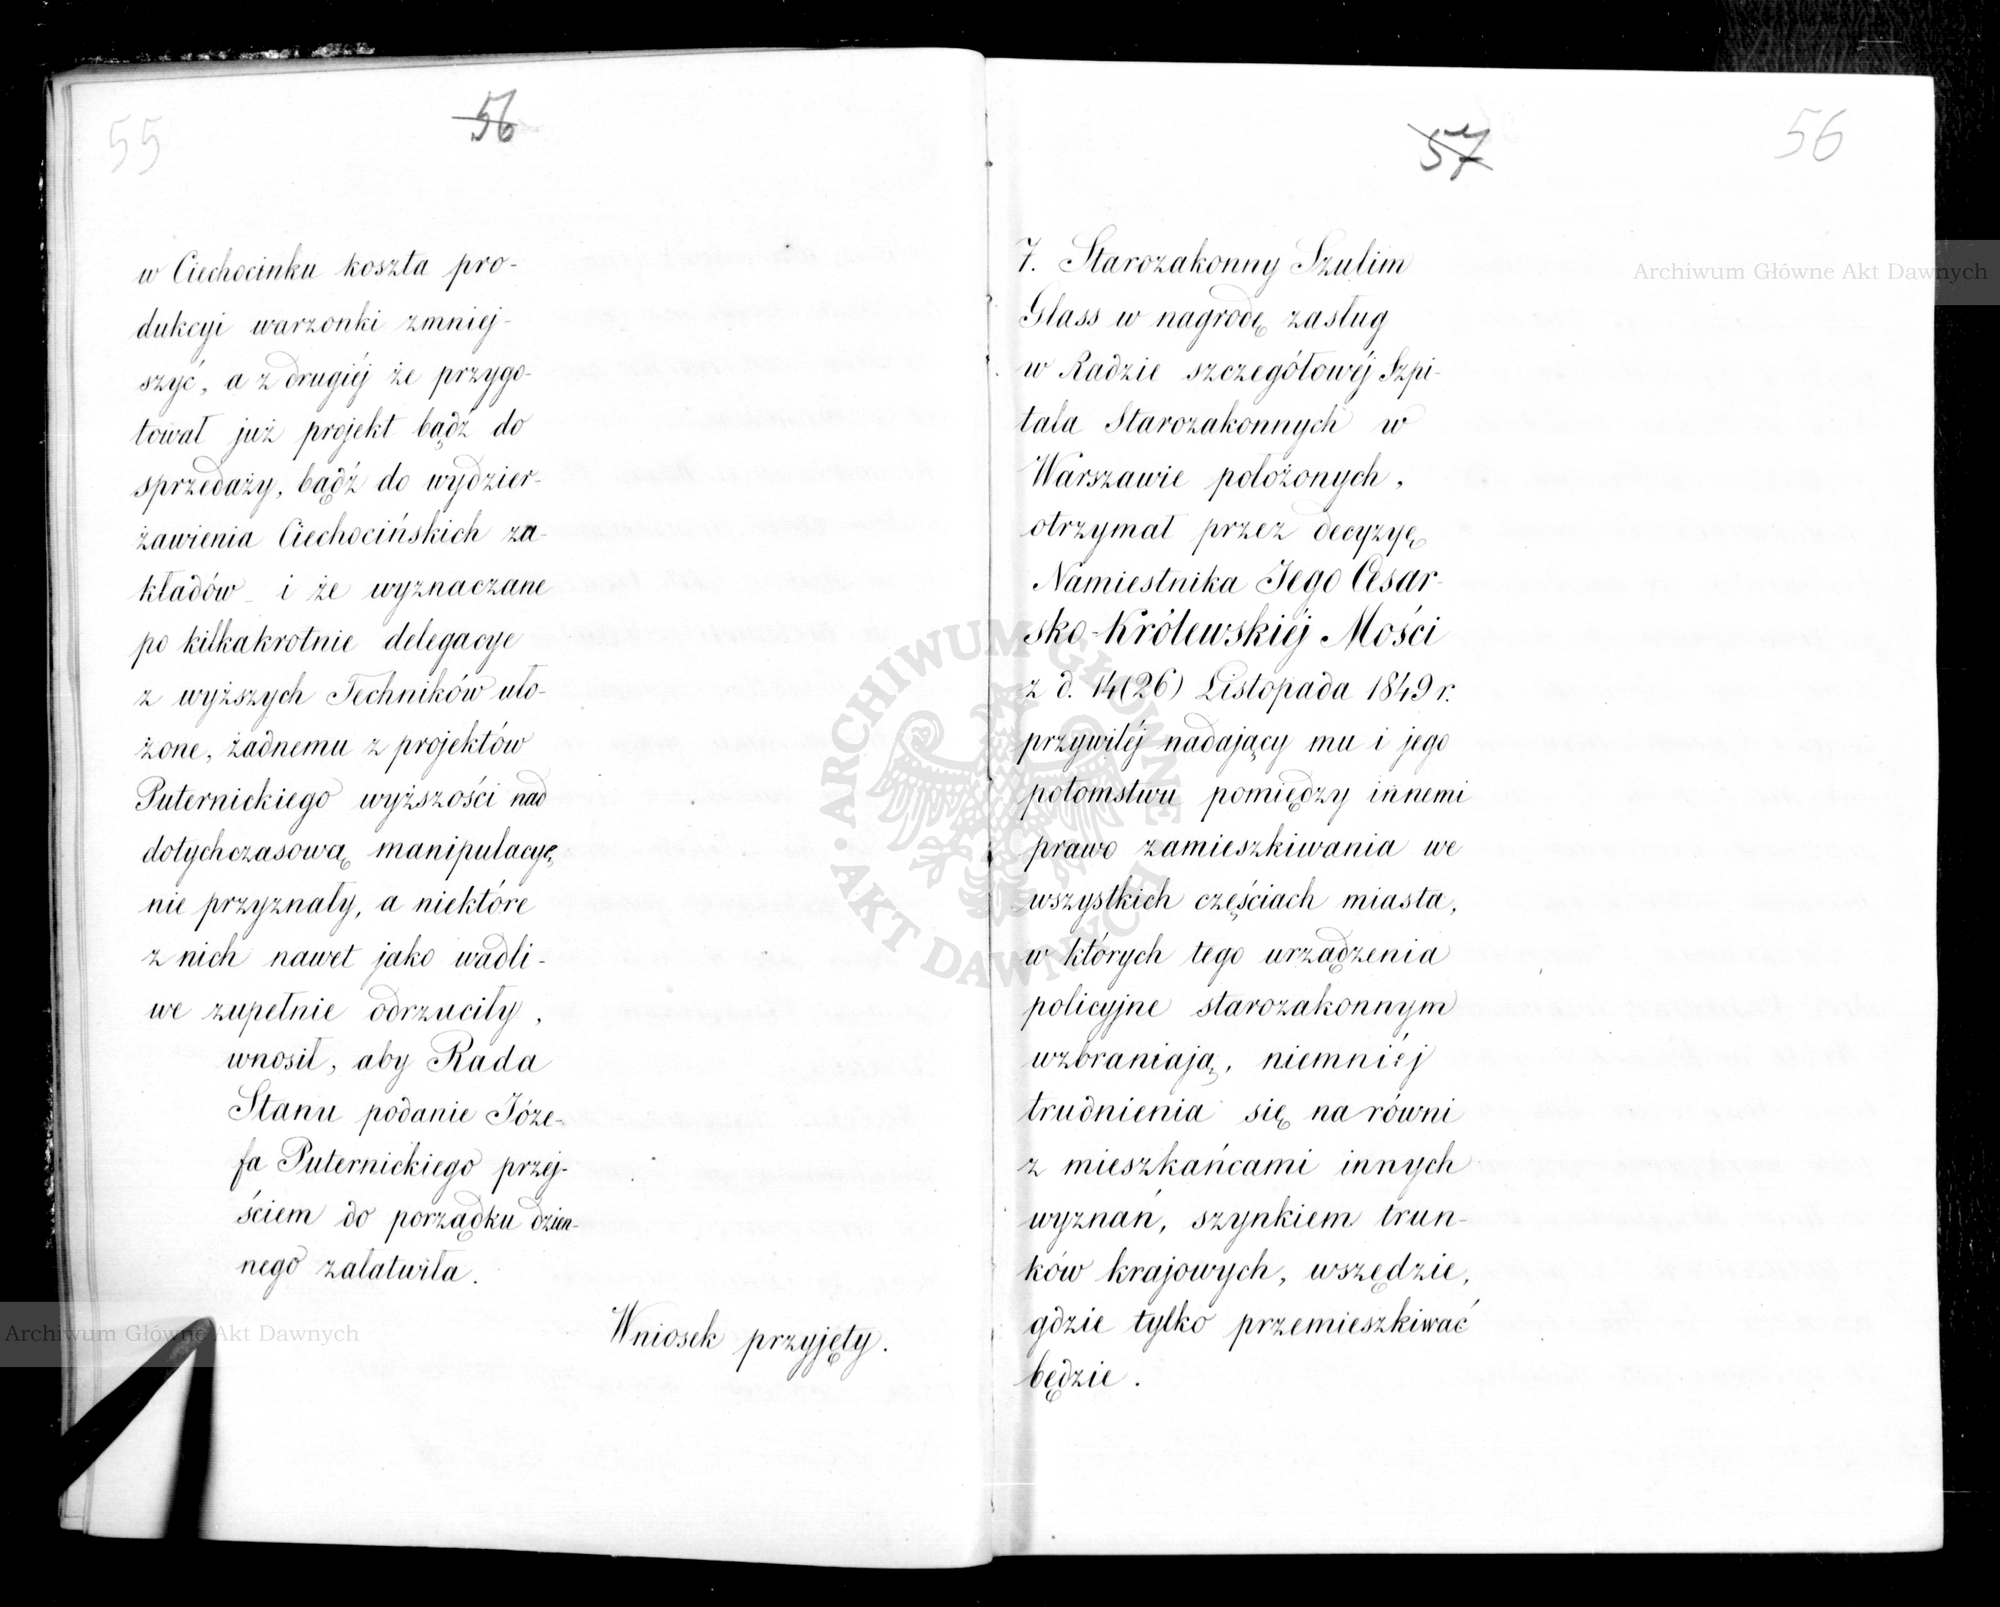 55
56
w Ciechocinku koszta pro-
dukcyi warzonki zmniej-
szyć, a z drugiéj że przygo-
tował już projekt bądź do
sprzedaży, bądź do wydzier-
żawienia Ciechocińskich za-
kładów i że wyznaczane
po kilkakrotnie delegacye
z wyższych Techników uło-
żone, żadnemu z projektów
Puternickiego wyższości nad
dotychczasową manipulacyę
nie przyznały, a niektóre
z nich nawet jako wadli-
we zupełnie odrzuciły,
wnosił, aby Rada
Stanu podanie Józe-
fa Puternickiego przej-
ściem do porządku dzien-
nego załatwiła.
Wniosek przyjęty.
57
56
7. Starozakonny Szulim
Glass w nagrodę zasług
w Radzie szczegółowéj Szpi-
tala Starozakonnych w
Warszawie położonych,
otrzymał przez decyzyę
Namiestnika Jego Cesar-
sko-Królewskiéj Mości
z d. 14(26) Listopada 1849 r.
przywiléj nadający mu i jego
potomstwu pomiędzy innemi
prawo zamieszkiwania we
wszystkich częściach miasta,
w których tego urządzenia
policyjne starozakonnym
wzbraniają, niemniéj
trudnienia się na równi
z mieszkańcami innych
wyznań, szynkiem trun-
ków krajowych, wszędzie,
gdzie tylko przemieszkiwać
będzie.
Archiwum Główne Akt Dawnych
Archiwum Główne Akt Dawnych
ARCHIWUM GŁÓWNE
AKT DAWNYCH